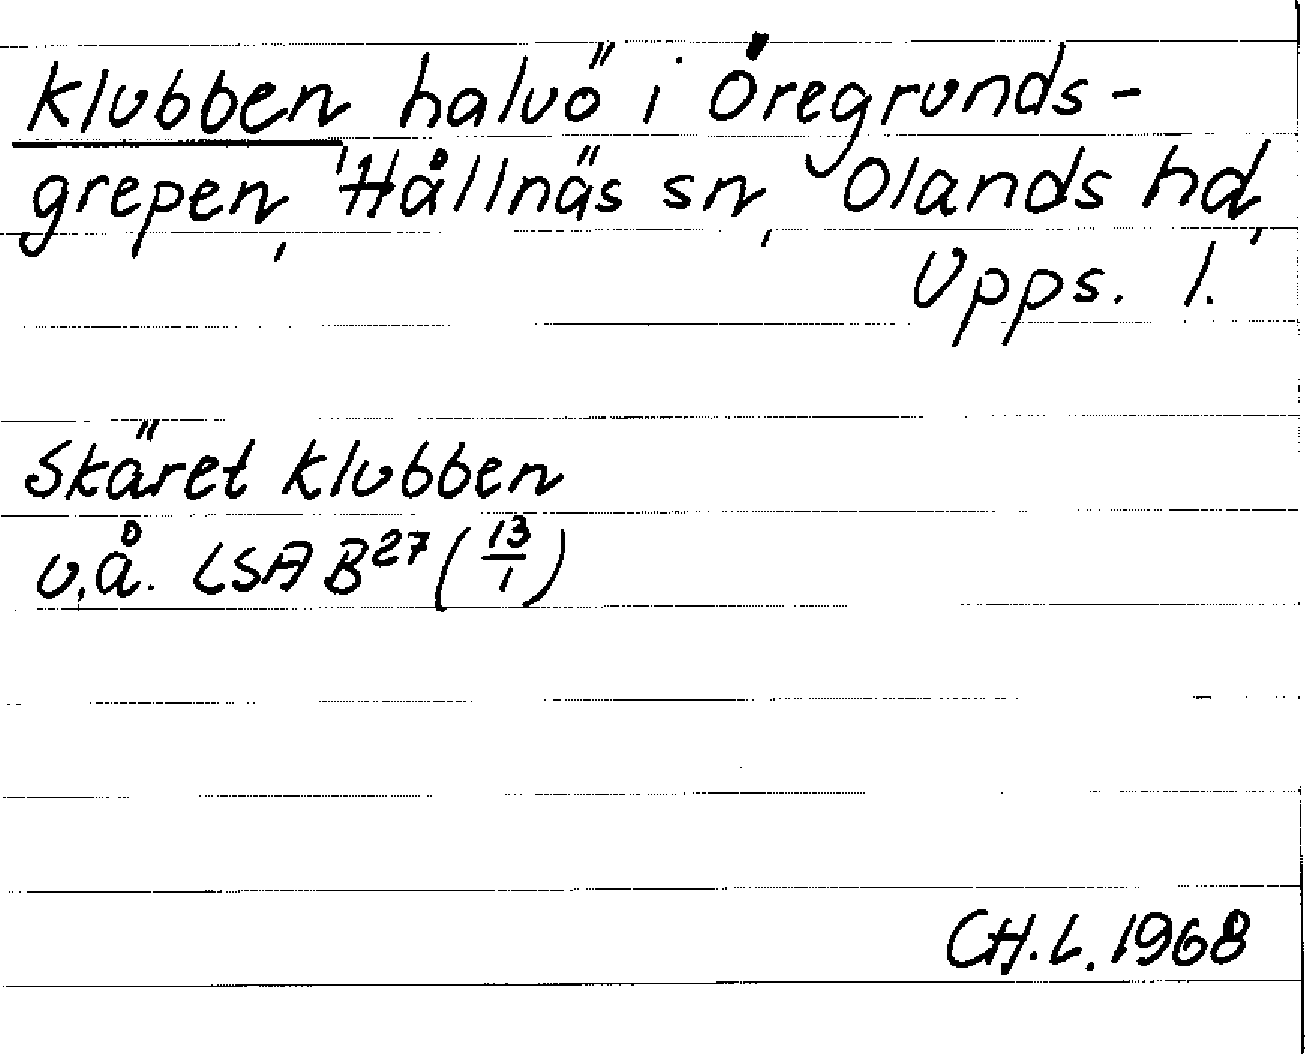 Klubben halvö i Öregrunds-
grepen, Hållnäs sn, Olands hd,
Upps. l.
Skäret Klubben
u.å. LSA B²⁷ (13/1)
CH.L. 1968